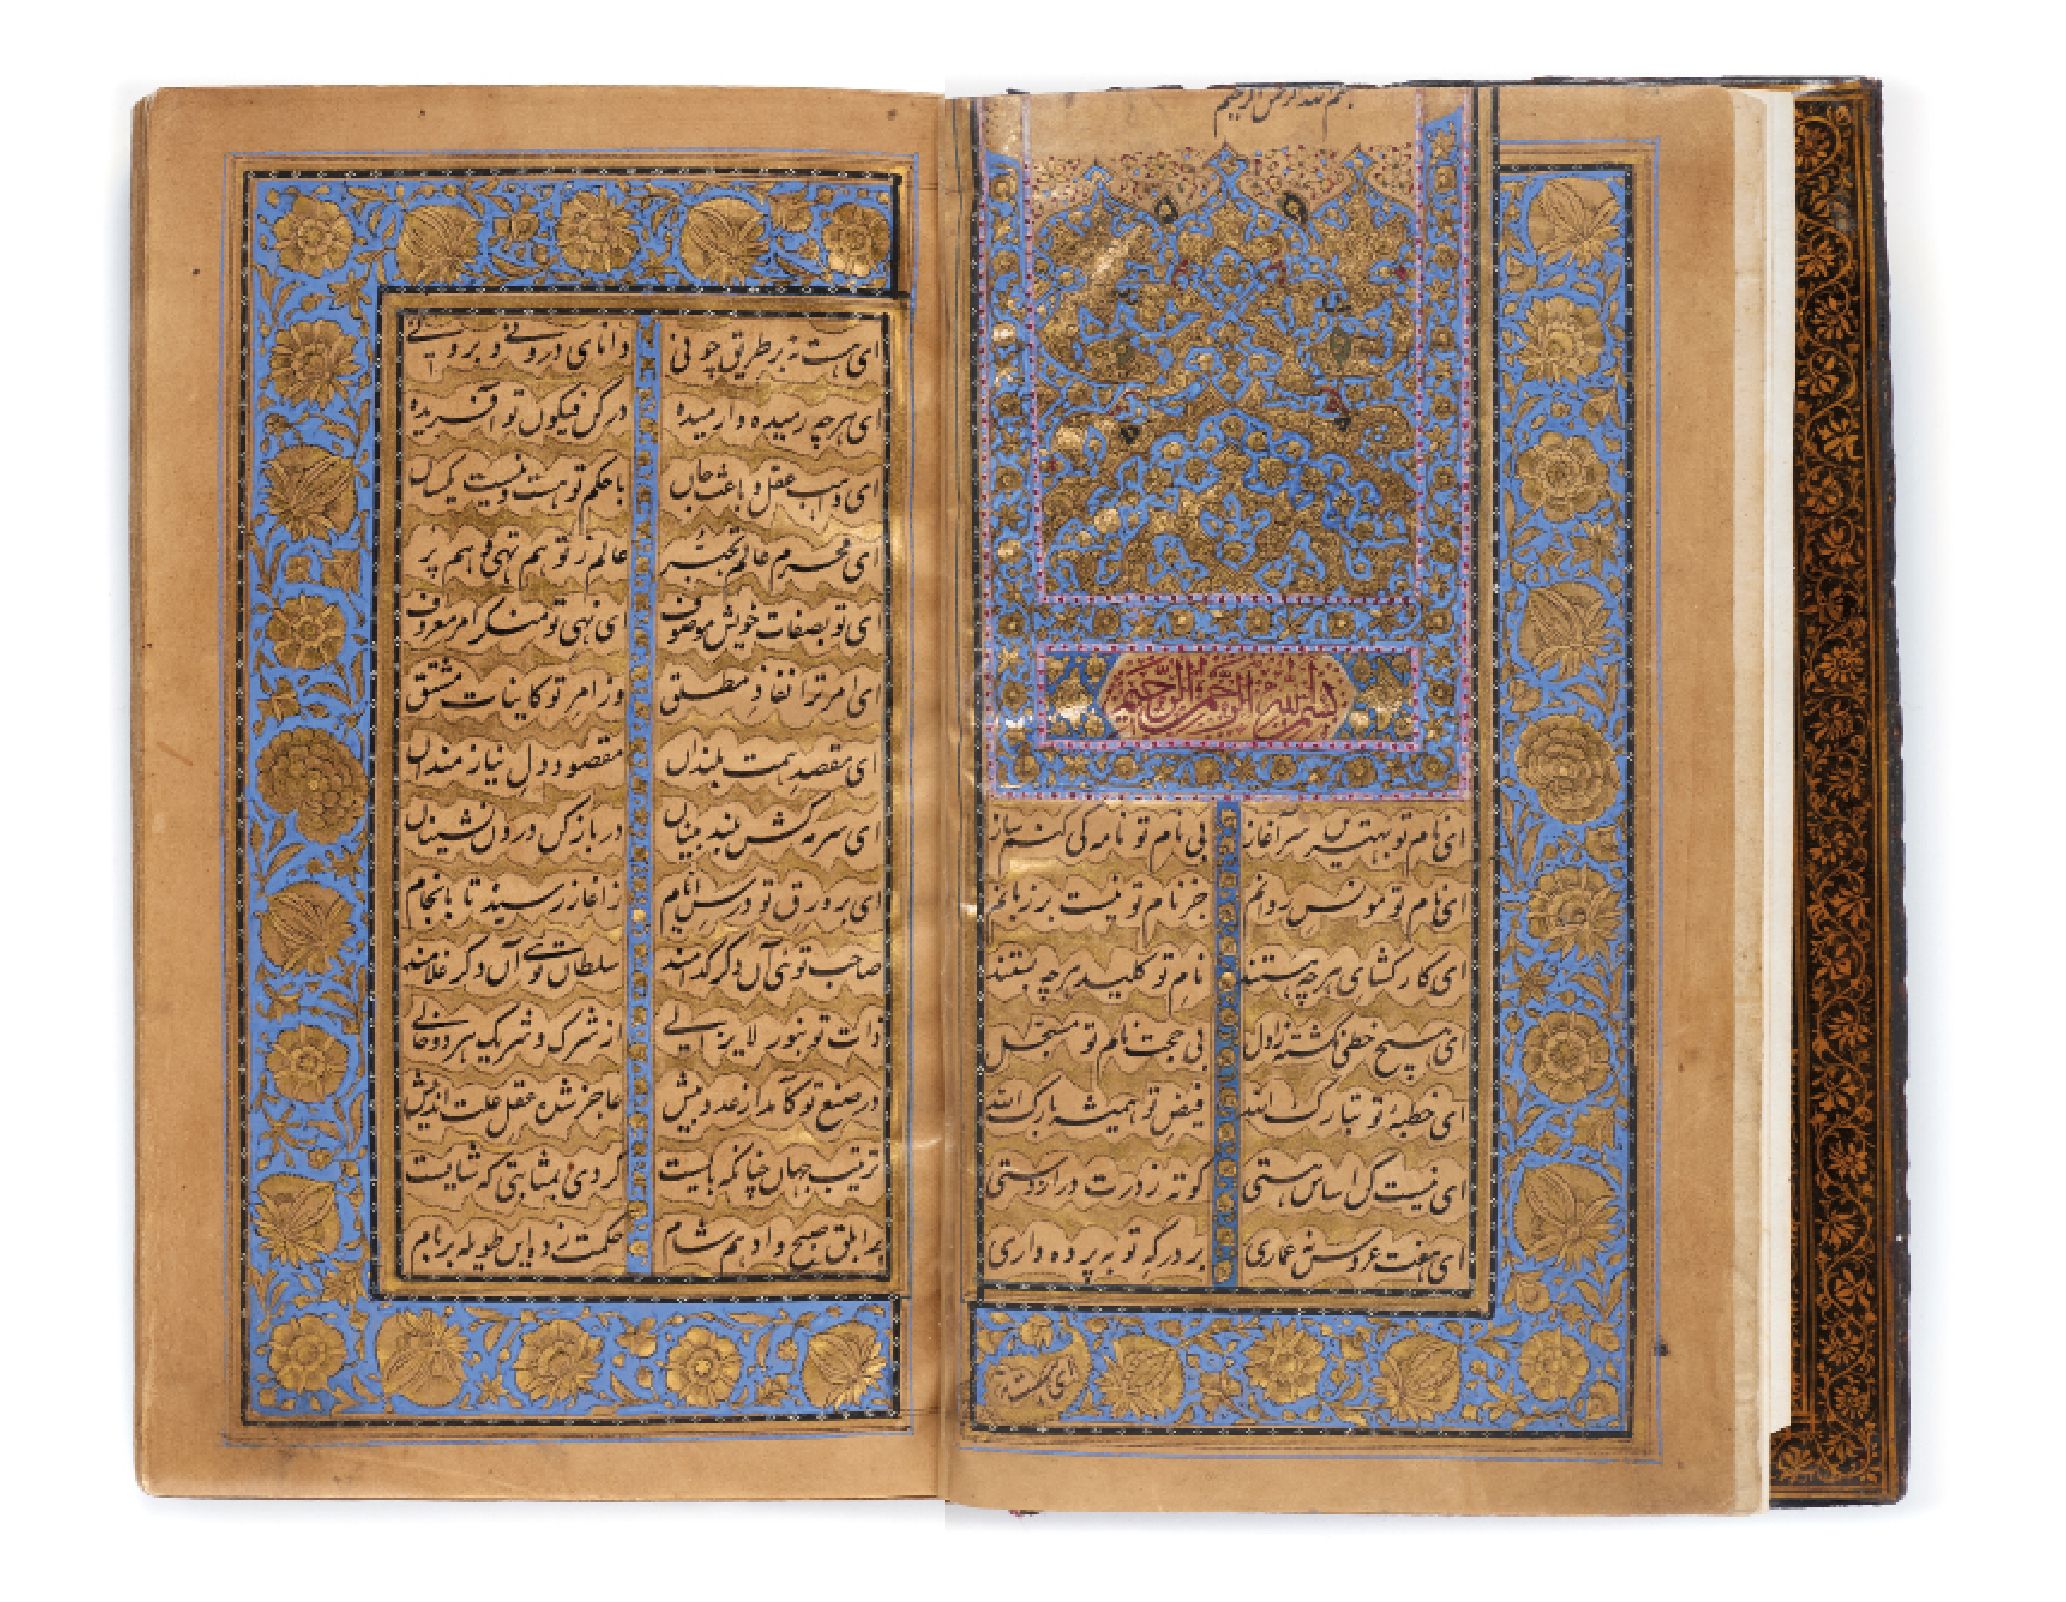 بسم الله الرحمن الرحیم
بسم الله الرحمن الرحیم
ای نام تو بهترین سرآغاز بی نام تو نامه کی کنم باز
ای نام تو مونس روانم جز نام تو نیست بر زبانم
ای کارکشای هرچه هستند نام تو کلید هرچه بستند
ای هیچ خطی نکشته زاول بی حجت نام تو مسجل
ای خطبهٔ تو تبارک الله فیض تو همیشه بارک الله
ای نیست کن اساس هستی کوته ز درت دراز دستی
ای هفت عروس نه عماری بر درکه تو به پرده داری
ای هست نه
ای هست نه بر طریق چونی دانای درونی و برونی
ای هرچه رمیده وارمیده در کن فیکون تو آفریده
ای واهب عقل و باعث جان با حکم تو هست و نیست یکسان
ای محرم عالم تحیر عالم ز تو هم تهی و هم پر
ای تو بصفات خویش موصوف ای نهی تو منکر امر معروف
ای امر ترا نفاذ مطلق وز امر تو کاینات مشتق
ای مقصد همت بلندان مقصود دل نیازمندان
ای سرمه کش بلند بینان در باز کن درون نشینان
ای بر ورق تو درس ایام ز اغاز رسیده تا بانجام
صاحب توئی آن دکر کدامند سلطان توئی آن دکر غلامند
ذات تو بنور لایزالی از شرک و شریک هر دو خالی
در صنع تو کآمد از عدد بیش عاجز شده عقل علت اندیش
ترتیب جهان چنانکه بایست کردی بمثابتی که شایست
بر ابلق صبح و ادهم شام حکمت زد این طویله بر بام